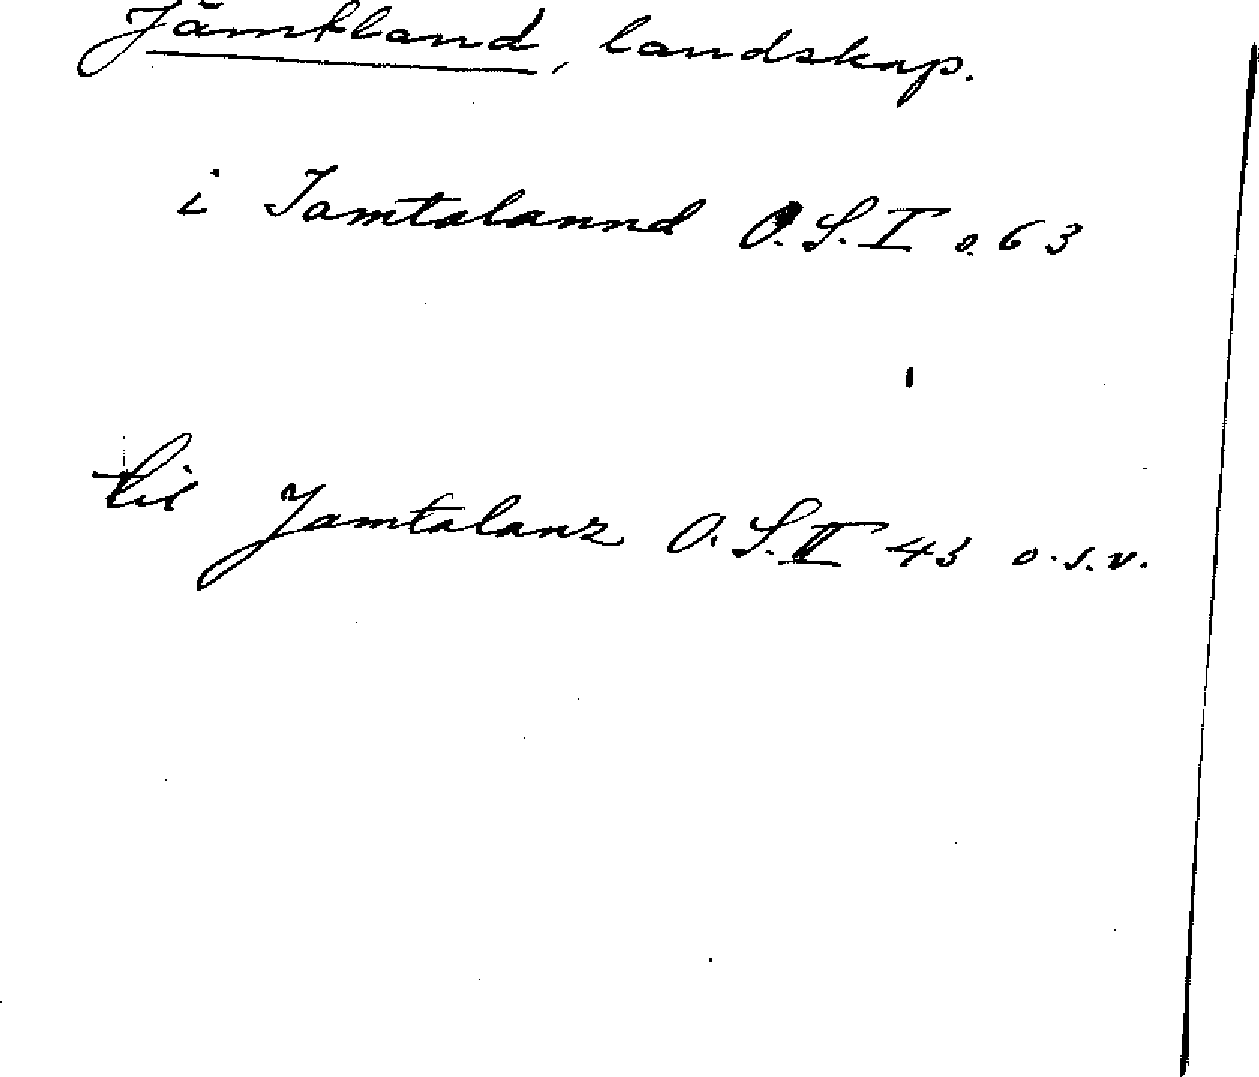 Jämtland, landskap.
i Iamtalannd O.S.I s. 63
til Jamtalanz O.S.II 43 o.s.v.